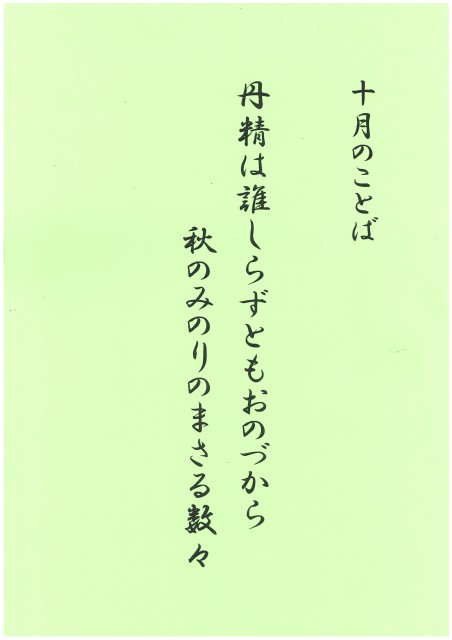 十月のことば
丹精は誰しらずともおのづから
秋のみのりのまさる数々